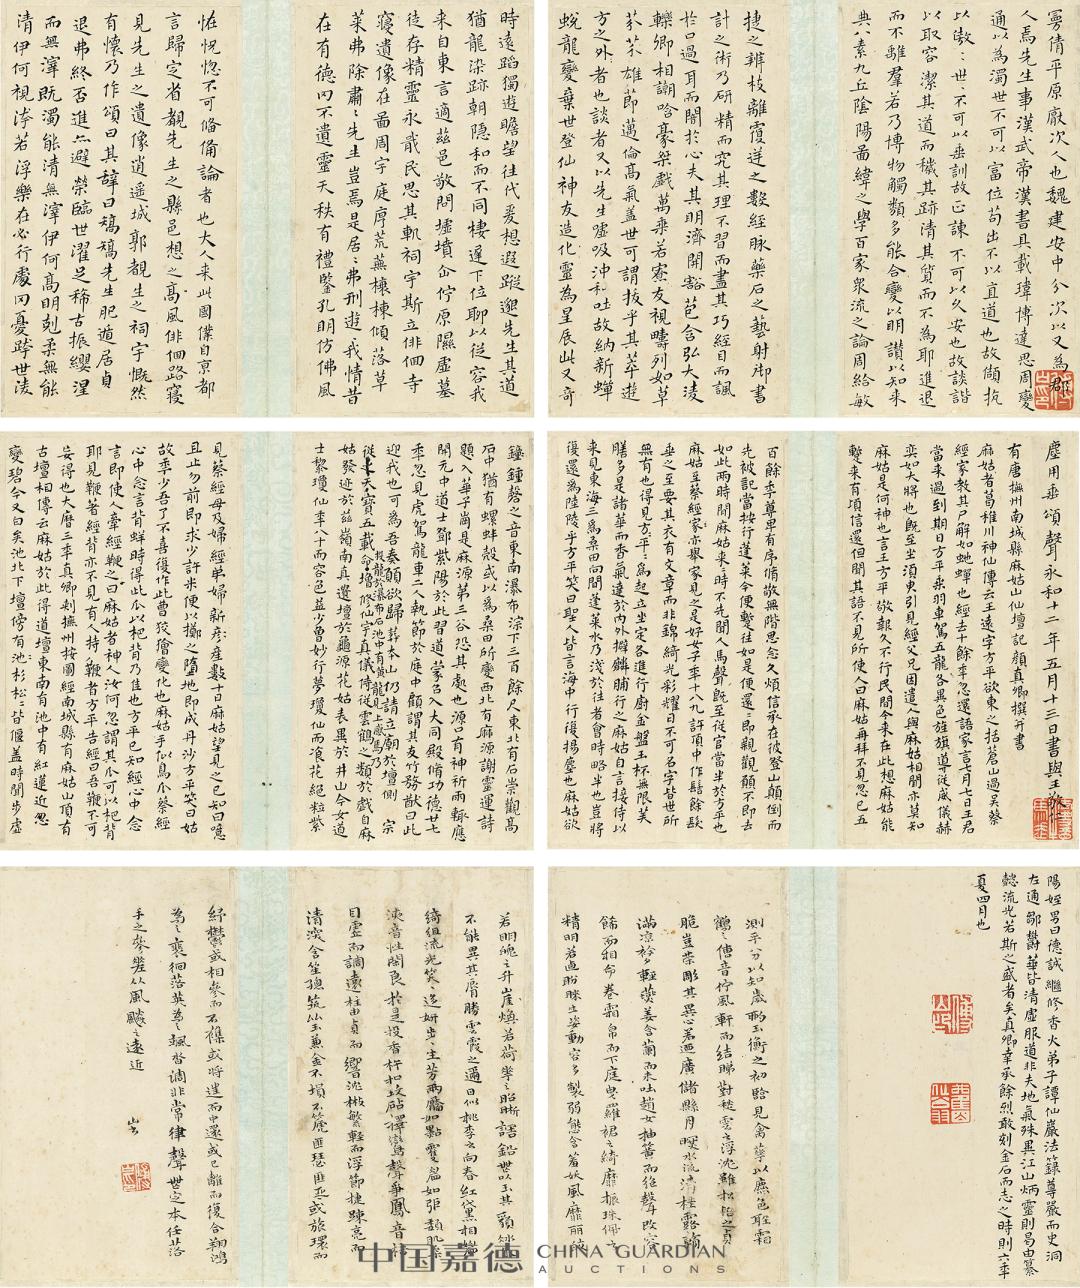 曼倩平原厭次人也魏建安中分次以又為郡
人焉先生事漢武帝漢書具載瑋博達思周變
通以為濁世不可以富位苟出不以直道也故頡抗
以傲〻世〻不可以垂訓故正諫不可以久安也故談諧
以取容潔其道而穢其跡清其質而不為耶進退
而不離羣若乃博物觸類多能合變以明讚以知来
典八素九丘陰陽圖緯之學百家衆流之論周給敏
捷之辨枝離覆逆之數經脉藥石之藝射御書
計之術乃研精而究其理不習而盡其巧經目而諷
於口過耳而闇於心夫其明濟開豁苞含弘大淩
轢卿相謿哈豪桀戲萬乘若寮友視疇列如草
芥雄節邁倫高氣蓋世可謂拔乎其萃遊
方之外者也談者又以先生噓吸沖和吐故納新蟬
蛻龍變棄世登仙神友造化靈為星辰此又奇
時遠蹈獨遊瞻望往代爰想遐蹤邈先生其道
猶龍染跡朝隱和而不同棲遲下位聊以從容我
来自東言適茲邑敬問墟墳企佇原隰虛墓
徒存精靈永戢民思其軌祠宇斯立徘徊寺
寢遺像在啚周宇庭序荒蕪榱棟傾落草
萊弗除肅〻先生豈焉是居〻弗刑遊〻我情昔
在有德罔不遺靈天秩有禮鑒孔明仿佛風
恠怳惚不可備論者也大人来此國僕自京都
言歸定省覩先生之縣邑想之高風徘徊路寢
見先生之遺像逍遥城郭覩生之祠宇慨然
有懷乃作頌曰其辭曰矯矯先生肥遁居貞
退弗終否進亦避榮臨世濯足稀古振纓涅
而無滓既濁能清無滓伊何高明剋柔無能
清伊何視洿若浮樂在必行處罔憂跨世淩
塵用垂頌聲永和十二年五月十三日書與王敬仁
有唐撫州南城縣麻姑山仙壇記顔真卿撰并書
麻姑者葛稚川神仙傳云王遠字方平欲東之括蒼山過吳蔡
經家教其尸解如虵蟬也經去十餘年忽還語家言七月七日王君
當来過到期日方平乘羽車駕五龍各異色旌旗導從威儀赫
奕如大將也既至坐須臾引見經父兄因遣人與麻姑相聞亦莫知
麻姑是何神也言王方平敬報久不行民間今来在此想麻姑能
暫来有頃信還但聞其語不見所使人曰麻姑再拜不見忽已五
百餘年尊卑有序脩敬無階思念久煩信承在彼登山顛倒而
先被記當按行蓬萊今便暫往如是便還〻即親觀願不即去
如此兩時間麻姑来〻時不先聞人馬聲既至從官當半於方平也
麻姑至蔡經亦舉家見之是好女子年十八九許頂中作髻餘髮
垂之至要其衣有文章而非錦綺光彩耀日不可名字皆世所
無有也得見方平〻為起立坐定各進行厨金盤玉杯無限美
膳多是諸華而香氣達於内外擗麟脯行之麻姑自言接侍以
来見東海三為桑田向間蓬莱水乃淺於往者會時略半也豈將
復還為陸陵乎方平笑曰聖人皆言海中行復揚塵也麻姑欲
鐘鍾磬之音東南瀑布淙下三百餘尺東北有石崇觀高
石中猶有螺蚌殻或以為桑田所變西北有麻源謝靈運詩
題入華子崗是麻源第三谷恐其處也源口有神祈雨輙應
開元中道士鄧紫陽於此習道蒙召入大同殿脩功德廿七
年忽見虎駕龍車二人執節於庭中顧謂其友竹務猷曰此
迎我也可為吾奏願欲歸葬本山仍請立廟於壇側 宗
從之天寶五載投龍於瀑布石池中有黃龍見上感焉乃命增修仙宇真儀侍從雲鶴之類於戲自麻
姑發迹於茲嶺南真遺壇於龜源花姑表異於井山今女道
士黎瓊仙年八十而容色益少曽妙行夢瓊仙而飡花絕粒紫
見蔡經母及婦經弟婦新産數十日麻姑望見之已知曰噫
且止勿前即求少許米便以擲之墮地即成丹沙方平笑曰姑
故年少吾了不喜復作此曹狡獪變化也麻姑手似鳥爪蔡經
心中念言背蛘時得此爪以杷背乃佳也方平已知經心中念
言即使人牽經鞭之曰麻姑者神人汝何忽謂其爪可以杷背
耶見鞭著經背亦不見有人持鞭者方平告經曰吾鞭不可
妄得也大曆三年真卿刺撫州按圖經南城縣有麻姑山頂有
古壇相傳云麻姑於此得道壇東南有池中有紅蓮近忽
變碧今又白矣池北下壇傍有杉松〻皆偃盖時聞步虛
陽姪男曰德誠繼修香火弟子譚仙巖法籙尊嚴而史洞
左通鄒欝華皆清虛服道非夫地氣殊異江山炳靈則曷由纂
懿流光若斯之盛者矣真卿幸承餘烈敢刻金石而志之時則六年
夏四月也
測平分以知歳酌玉衡之初臨見禽華以麃色聆霜
鶴〻傳音佇風軒而結睇對愁雲之浮沈雖松梧之貞
脆豈榮彫其異心若廼廣儲縣月暉水流清桂露朝
滿凉衿夕輕燕姜含蘭而未吐趙女抽簧而絶聲改容
餙而相命卷霜帛而下庭曳羅裙之綺靡振珠佩之
精明若廼盼睞生姿動容多製弱態含羞妖風靡麗
若明魄之升崖煥若荷華之昭晰調鉛無以玉其貌凝
不能異其脣勝雲霞之邇日似桃李之向春紅黛相媚
綺組流光笑〻造妍步〻生芳兩靨如點雙眉如張頮肌柔
液音性閑良於是投香杵扣玟砧擇鸞聲爭鳳音梧
目虛而調遠柱由貞而響沈散繁輕而浮節捷踈亮而
清深含笙總筑比玉兼金不塤不箎匪瑟匪或旅環而
紓鬱或相參而不雜或將進而中還或已離而復合翔鴻
為之裵徊落英為之飄沓調非常律聲無定本任落
手之參差從風飈之遠近
中国嘉德 CHINA GUARDIAN
AUCTIONS